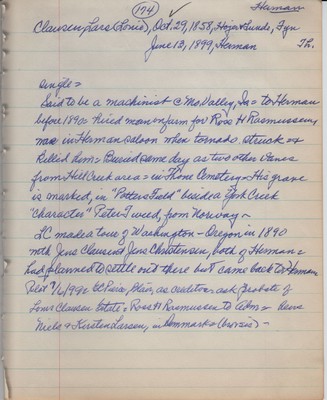 Herman
174
Clausen, Lars (Louie), Oct. 29, 1858, Hojer Lunde, Fyn
June 13, 1899, Herman Th.
single =
Said to be a machinist c Mo. Valley, Ia = to Herman
before 1890 = Hired man on farm for Ross H Rasmussen,
was in Herman saloon when tornado struck &
killed him = Buried same day as two other Danes
from Fell Creek area = in Rhone Cemetery = His grave
is marked, in "Potters Field" beside a York Creek
"character" Peter Tweed, from Norway ~
LC made a tour of Washington - Oregon in 1890
with Jens Clausen & Jens Christensen, both of Herman =
had planned to settle out there but came back to Herman
Pilot 7/6/99 =
Blair, as creditors ask probate of
Louis Clausen Estate = Ross H Rasmussen to Adm =
Niels & Kirsten Larsen, in Denmark = (cousin) -